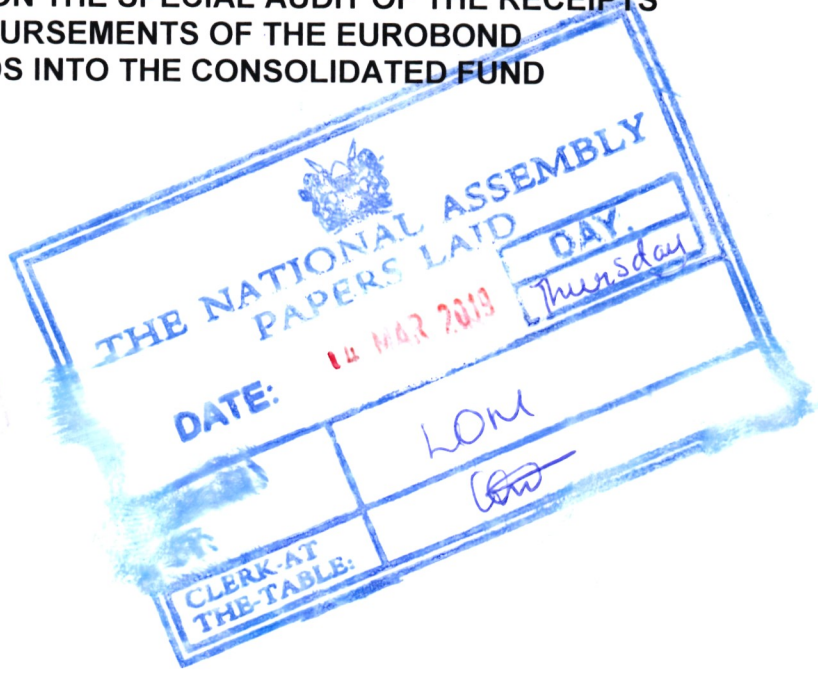 ON THE SPECIAL AUDIT OF THE RECEIPTS
URSEMENTS OF THE EUROBOND
S INTO THE CONSOLIDATED FUND
THE NATIONAL ASSEMBLY
PAPERS LAID
DAY.
Thursday
DATE:
14 MAR 2019
LOM
CLERK-AT
THE-TABLE: